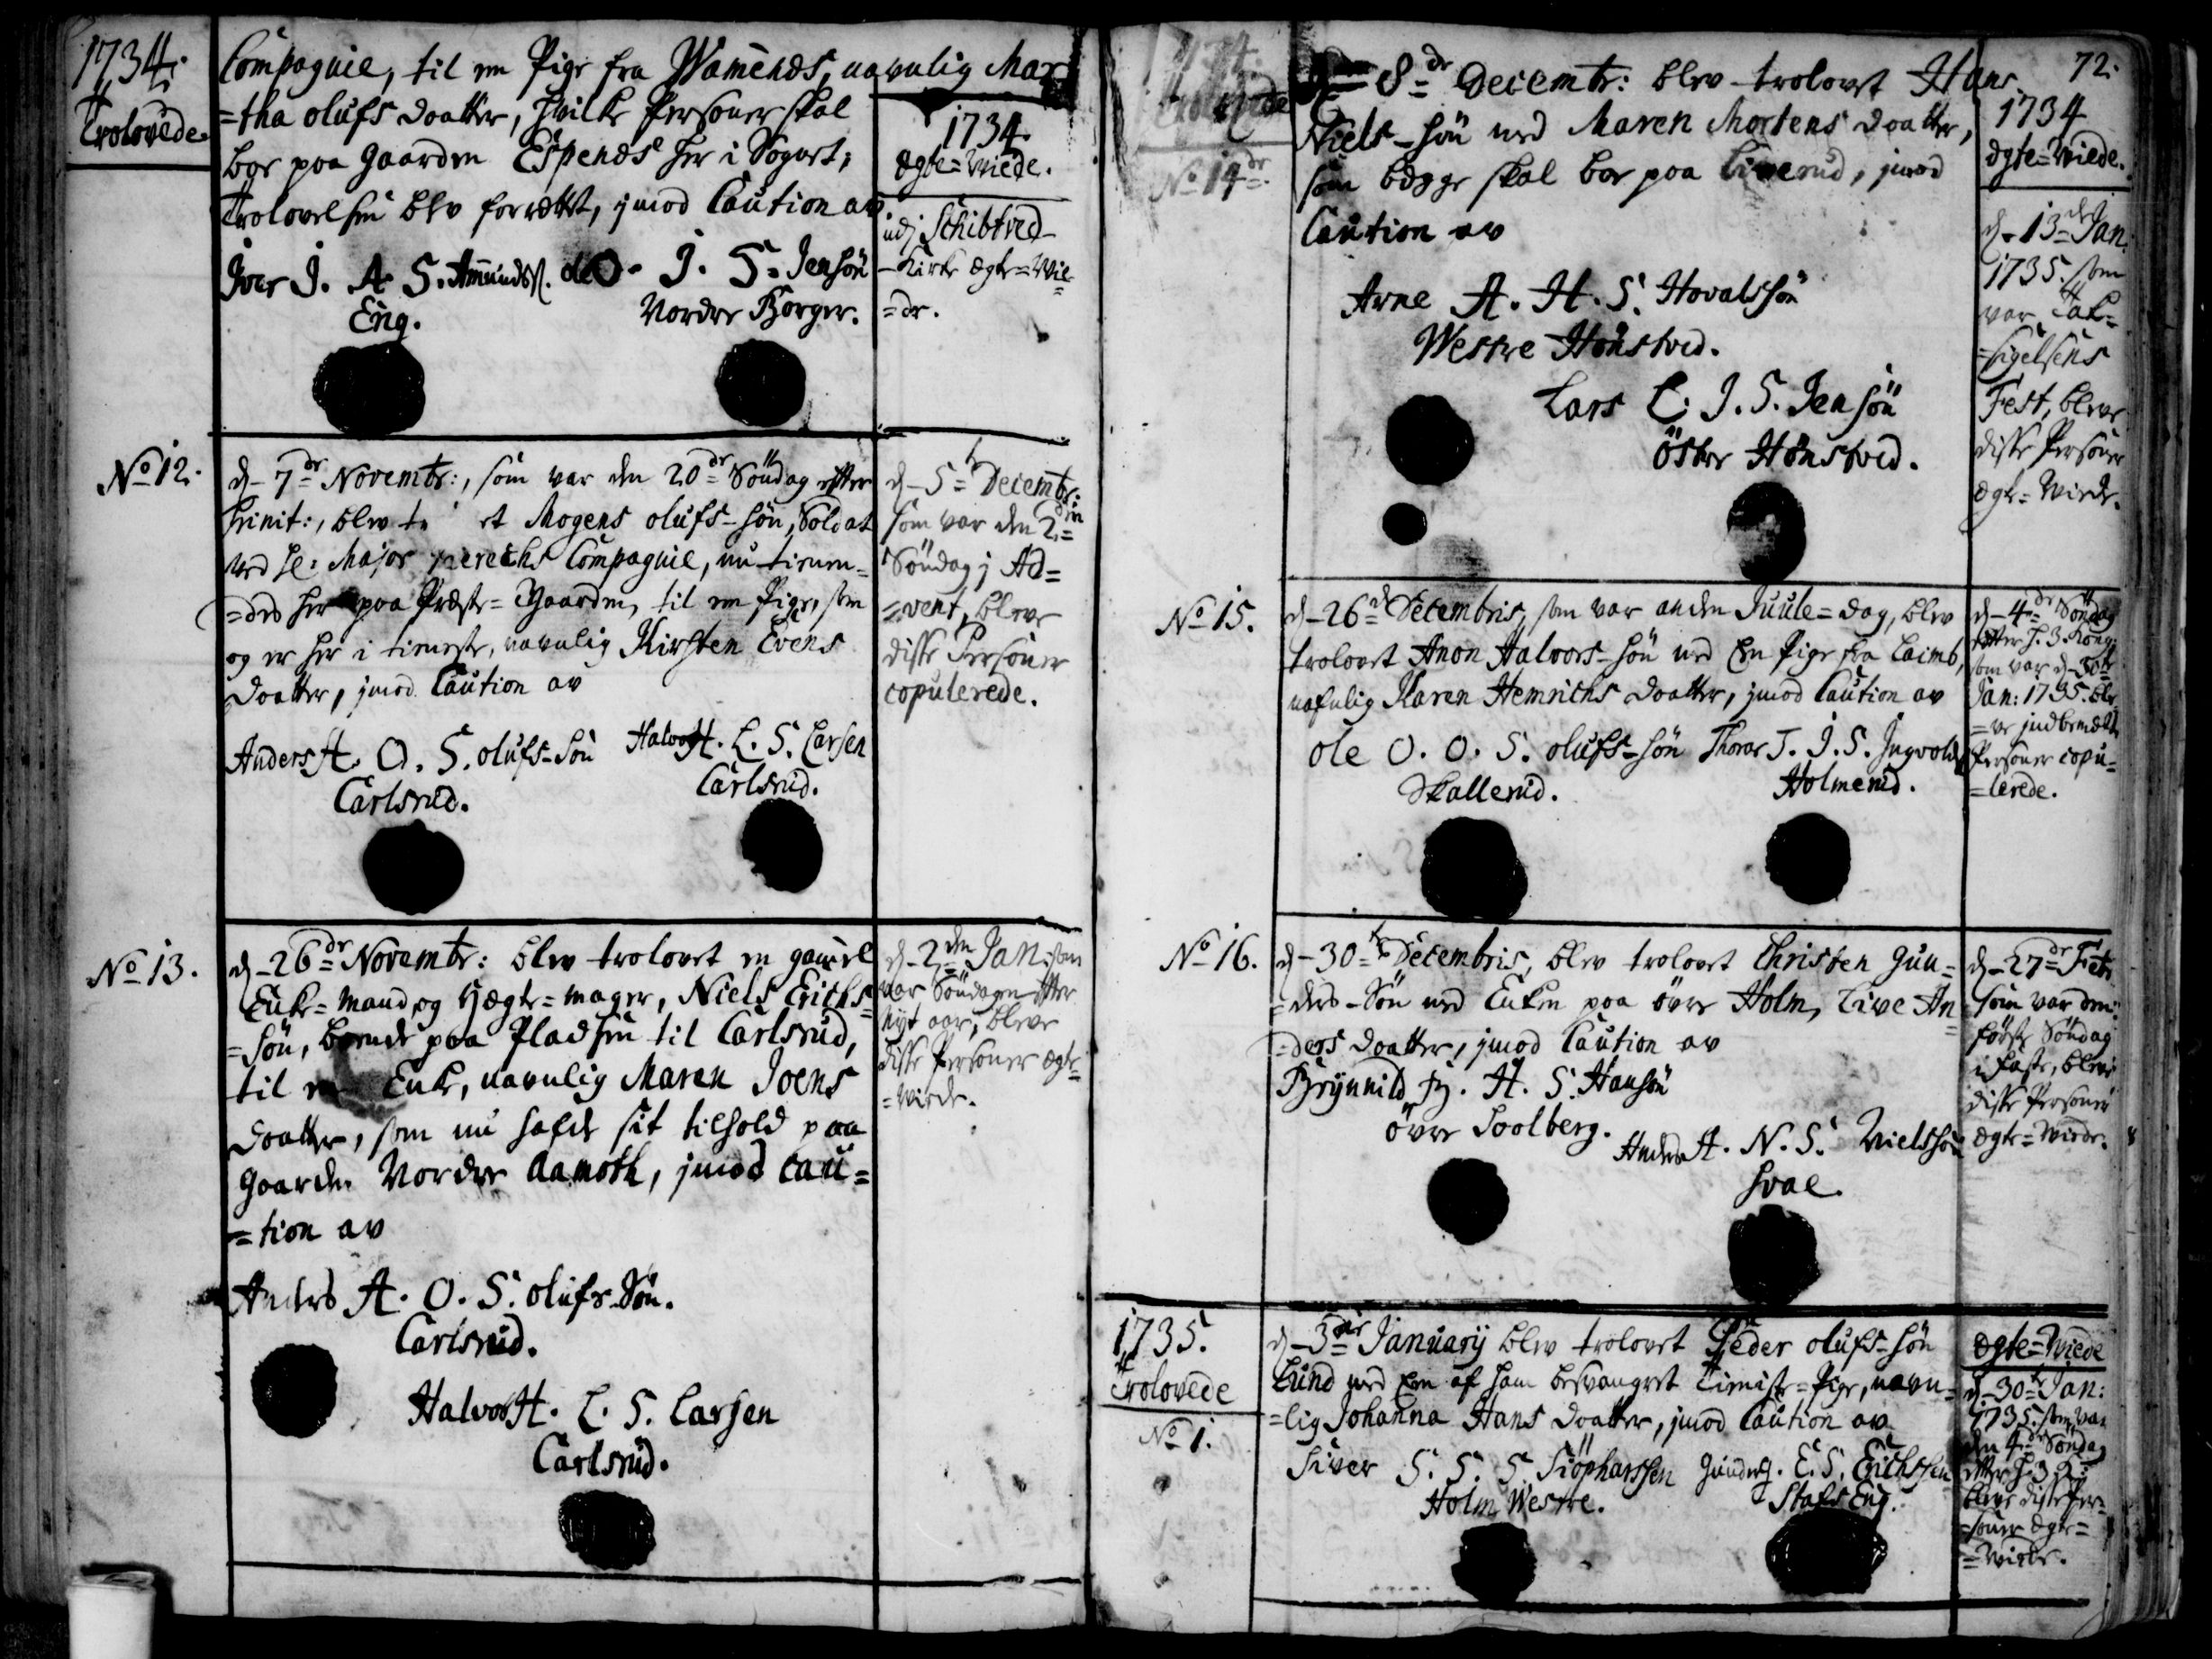 1734.
Trolovede.
Compagnie, til en Pige fra Wamends, navnlig Mar
=tha olufs Daatter, hvilke Personer skal
boe paa Gaarden Espends her i Sognet;
Trolovelsen blev forrettet, jmod Caution av.
Iver I. A. S. Amundss. de O. I. S. Jensön
Eng.
Nordre Borger.
1734.
Ægte=Wiede.
udj Schibtved
Kirke Ægte=Wie
=de.
No 12.
d. 7de Novembr:, som var den 20de Söndag efter
Trinit:, blev et Mogens olufs-Sön, Soldat
ved Hr: Major Compagnie, nu tienen=
=des her paa Præste=Gaarden, til en Pige, som
og er her i tieneste, navnlig Kirsten Evens
Daatter, jmod Caution av
Anders A. O. S. olufs-Sön
Carlsrud.
Halvor H. L. S. Larsen
Carlsrud.
d. 5te Decembr:
som var den 2den
Söndag j Ad=
=vent, bleve
disse Personer
copulerede.
No 13.
d. 26de Novembr: blev trolovet en gamel
Enke=Mand og Hægte=mager, Niels Erichs=
=Sön, boende paa Pladsen til Carlsrud,
til en Enke, navnlig Maren Joens
Daatter, som nu hafde sit tilhold paa
Gaarden Nordre Aamoth, jmod Cau=
=tion av
Anders A. O. S. olufs-Sön.
Carlsrud.
Halvor H. L. S. Larsen
Carlsrud.
d. 2den Jan: som
var Söndagen efter
Nyt aar, bleve
disse Personer Ægte=
=Wiede.
72.
1734.
Trolovede
No 14de
d. 8de Decembr: blev trolovet Hans
Niels-Sön med Maren Mortens Daatter,
som begge skal boe paa Liverud, jmod
Caution av
Arne A. H. S. Hovalssön
Westre Hönstved.
Lars L. I. S. Jensön
Östre Hönstved.
1734
Ægte=Wiede.
d. 13de Jan.
1735. som
var Tak=
=sigelsens
Fest, bleve
disse Personer
Ægte=Wiede.
No 15.
d. 26de Decembris, som var anden Juule=Dag, blev
trolovet Anon Halvors-Sön med Een Pige fra Laimb,
nafnlig Karen Hemrichs Daatter, jmod Caution av
ole O. O. S. olufs-Sön
Skallerud.
Thorer T. I. S. Ingvolds
Holmerud.
d. 4de Söndag
efter H. 3. Kong:
som var d. 30te
Jan: 1735. ble=
=ve jndbemælte
Personer copu=
=lerede.
No 16.
d. 30te Decembris, blev trolovet Christen Gun=
=ders-Sön med Enken paa övre Holm, Live An
=ders Daatter, jmod Caution av
Brynnild B. H. S. Hansön
övre Soolberg.
Anders A. N. S. Nielssön
Hvae.
d. 27de Febr
som var den
förste Söndag
i Faste, bleve
disse Personer
Ægte=Wiede.
1735.
Trolovede
No 1.
d. 3die Januarij blev trolovet Peder olufs-Sön
Lund med Een af ham besvangret Tieniste=Pige, navn=
=lig Johanna Hans Daatter, jmod Caution av
Siver S. S. S. Siöpharssen
Holm Westre.
Gunder G. E. S. Erichssen
Stafs Eng.
Ægte=Wiede
d. 30te Jan:
1735. som var
den 4de Söndag
efter H. 3 K:
bleve disse Per=
=soner Ægte=
=Wiede.